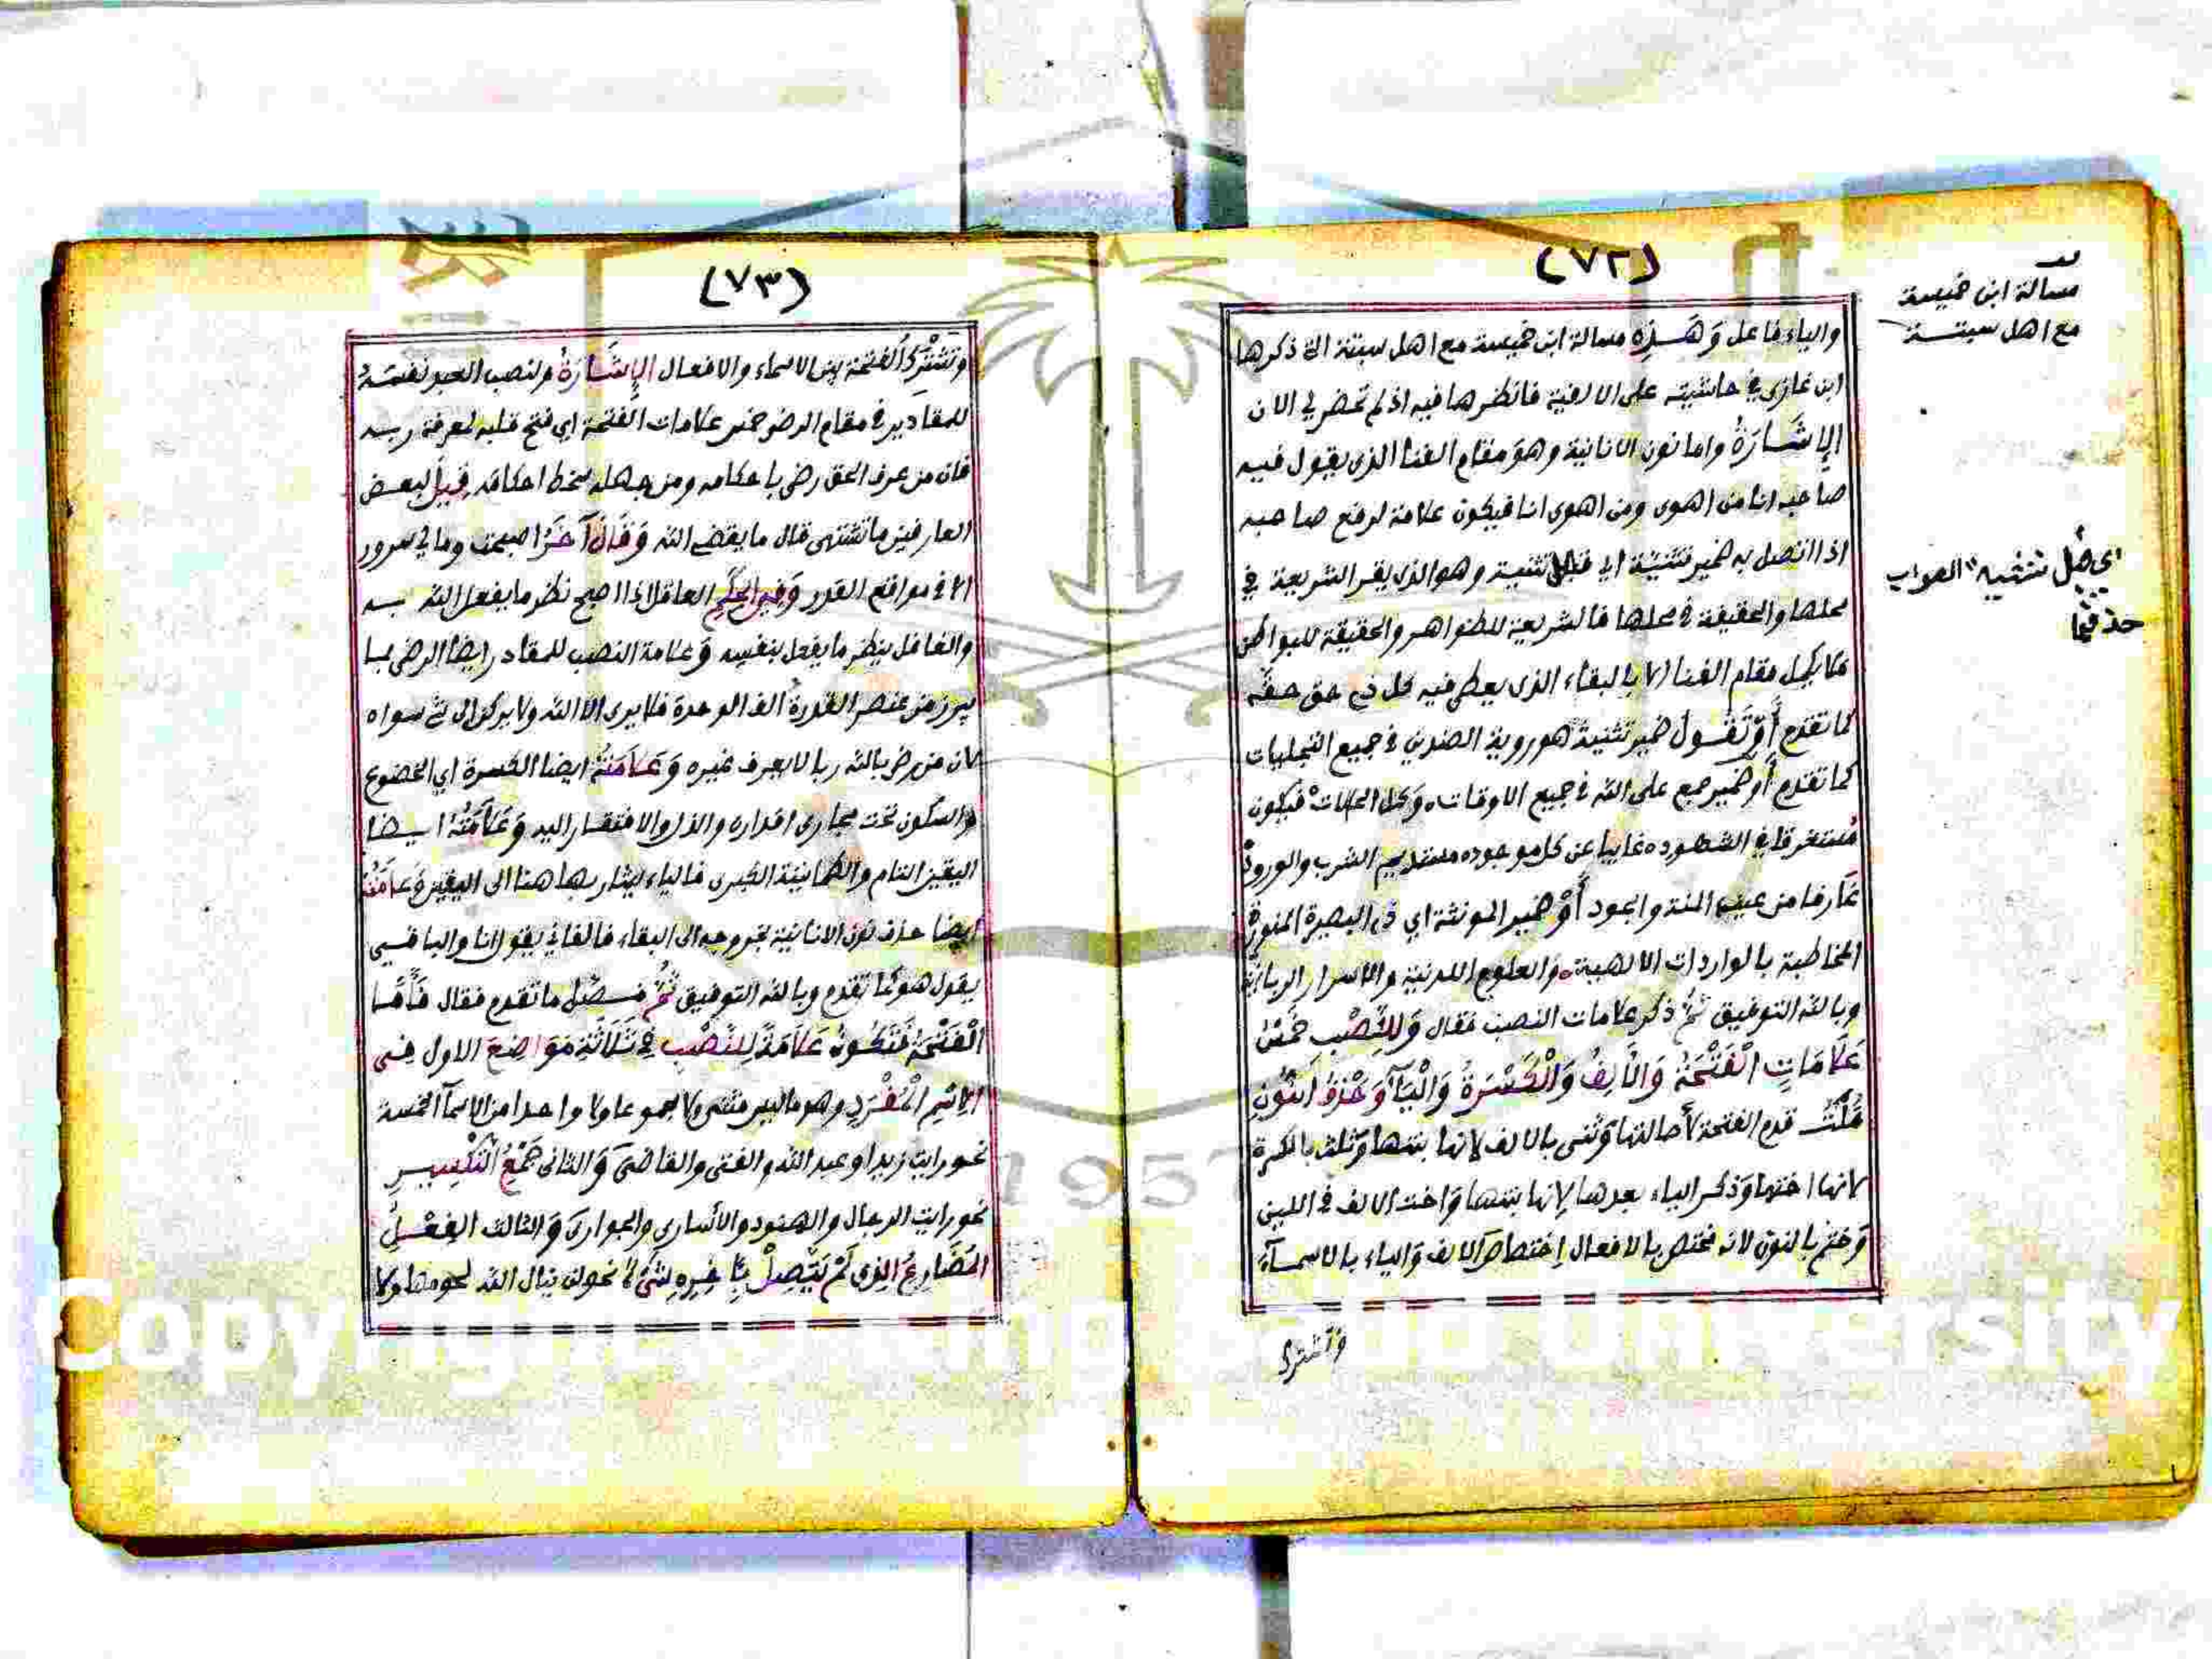 (٧٢)
مسالة ابن خميسة
مع اهل سبتة
والياء فاعل وَهَذِه مسالة ابن خميسة مع اهل سبتة التي ذكرها
ابن غازي في حاشيته على الالفية فانظرها فيه اذ لم تحضر لي الان
الإِشَارَةُ واما نون الانانية وهو مقام الفنا الذي يقول فيه
صاحبه انا من اهوى ومن اهوى انا فيكون علامة لرفع صاحبه
اذا اتصل به ضمير تثنية اي تثنية وهو الذي يقر الشريعة في
محلها والحقيقة في محلها فالشريعة للظواهر والحقيقة للبواطن
فلا يكمل مقام الفنا الا بالبقاء الذي يعطي فيه كل ذي حق حقه
كما تقدم أَوْ تَقُول ضمير تثنية هو روية الضدين في جميع التجليات
كما تقدم أَو ضمير جمع على الله في جميع الاوقات، وَكل الحالات فيكون
مستغرقا في الشهود، غايبا عن كل موجود، مستديم الشرب والورود
غارفا من عين المنة والجود أَوْ ضمير المونثة اي ذي البصيرة المنورة
المخاطبة بالواردات الالهية، والعلوم اللدنية والاسرار الربانية
وبالله التوفيق ثمَّ ذكر علامات النصب فقال وَلِلنَّصْبِ خَمْسُ
عَلَامَاتٍ الْفَتْحَةُ وَالْأَلِفُ وَالْكَسْرَةُ وَالْيَآءُ وَحَذْفُ النُّونِ
قُلْتُ قدم الفتحة لأصالتها وَثنى بالالف لانها بنتها وَثلث بالكسرة
لانها اختها وَذكر الياء بعدها لإنها بنتها وَاخت الالف في اللين
وَختم بالنون لانه مختص بالافعال إختصاص الالف وَالياء بالاسمآء
وتشترك
اي تثنيه الصواب
حذفها
(٧٣)
وَتَشْتَرك الفتحة بين الاسماء والافعال الإِشَارَةُ ولنصب العبد نفسَهُ
للمقادير في مقام الرضى خمس علامات الفتحة اي فتح قلبه لمعرفة ربه
فان من عرف الحق رضى باحكامه ومن جهله سخط احكامه قِيلَ لبعض
العارفين ما تشتهي قال ما يقضي الله وَقَالَ آخَرُ اصبحت وما لي سرور
الا في مواقع القدر وَفِي الحِكَمِ العاقل اذا اصبح نظر ما يفعل الله به
والغافل ينظر ما يفعل بنفسه وَعلامة النصب للمقادر ايضا الرضى بما
يبرز من عنصر القدرة الف الوحدة فلا يرى الا الله ولا يركن الى شي سواه
لان من رضى بالله ربا لا يعرف غيره وَعَلَامَتُهُ ايضا الكسرة اي الخضوع
والسكون تحت مجاري اقداره والذل والافتقار اليه وَعَلَامَتُهُ ايضا
اليقين التام والطمانينة الكبرى فالياء يشار بها هنا الى اليقين وَعَلَامَتُهُ
ايضا حذف نون الانانية بخروجه الى البقاء فالفاني يقول انا والباقي
يقول هو كما تقدم وبالله التوفيق ثُمَّ فَصَّل ما تقدم فقال فَأَمَّا
الْفَتْحَةُ فَتَكُونُ عَلَامَةً لِلنَّصْبِ فِي ثَلَاثَةِ مَوَاضِعَ الاول في
الاِسْمِ الْمُفْرَدِ وهو ما ليس مثنى ولا مجموعا ولا واحدا من الاسمآ الخمسة
نحو رايت زيدا وعبد الله والفتى والقاضيَ وَالثاني جَمْعُ التَّكْسِيرِ
نحو رايت الرجال والهنود والأسارى والجواريَ وَالثالث الفِعْلُ
المُضَارِعُ الذِي لَمْ يَتَّصِلْ بِآخِرِهِ شَيْءٌ نحو لن ينال الله لحومها ولا
Copyright © King Saud University
1957